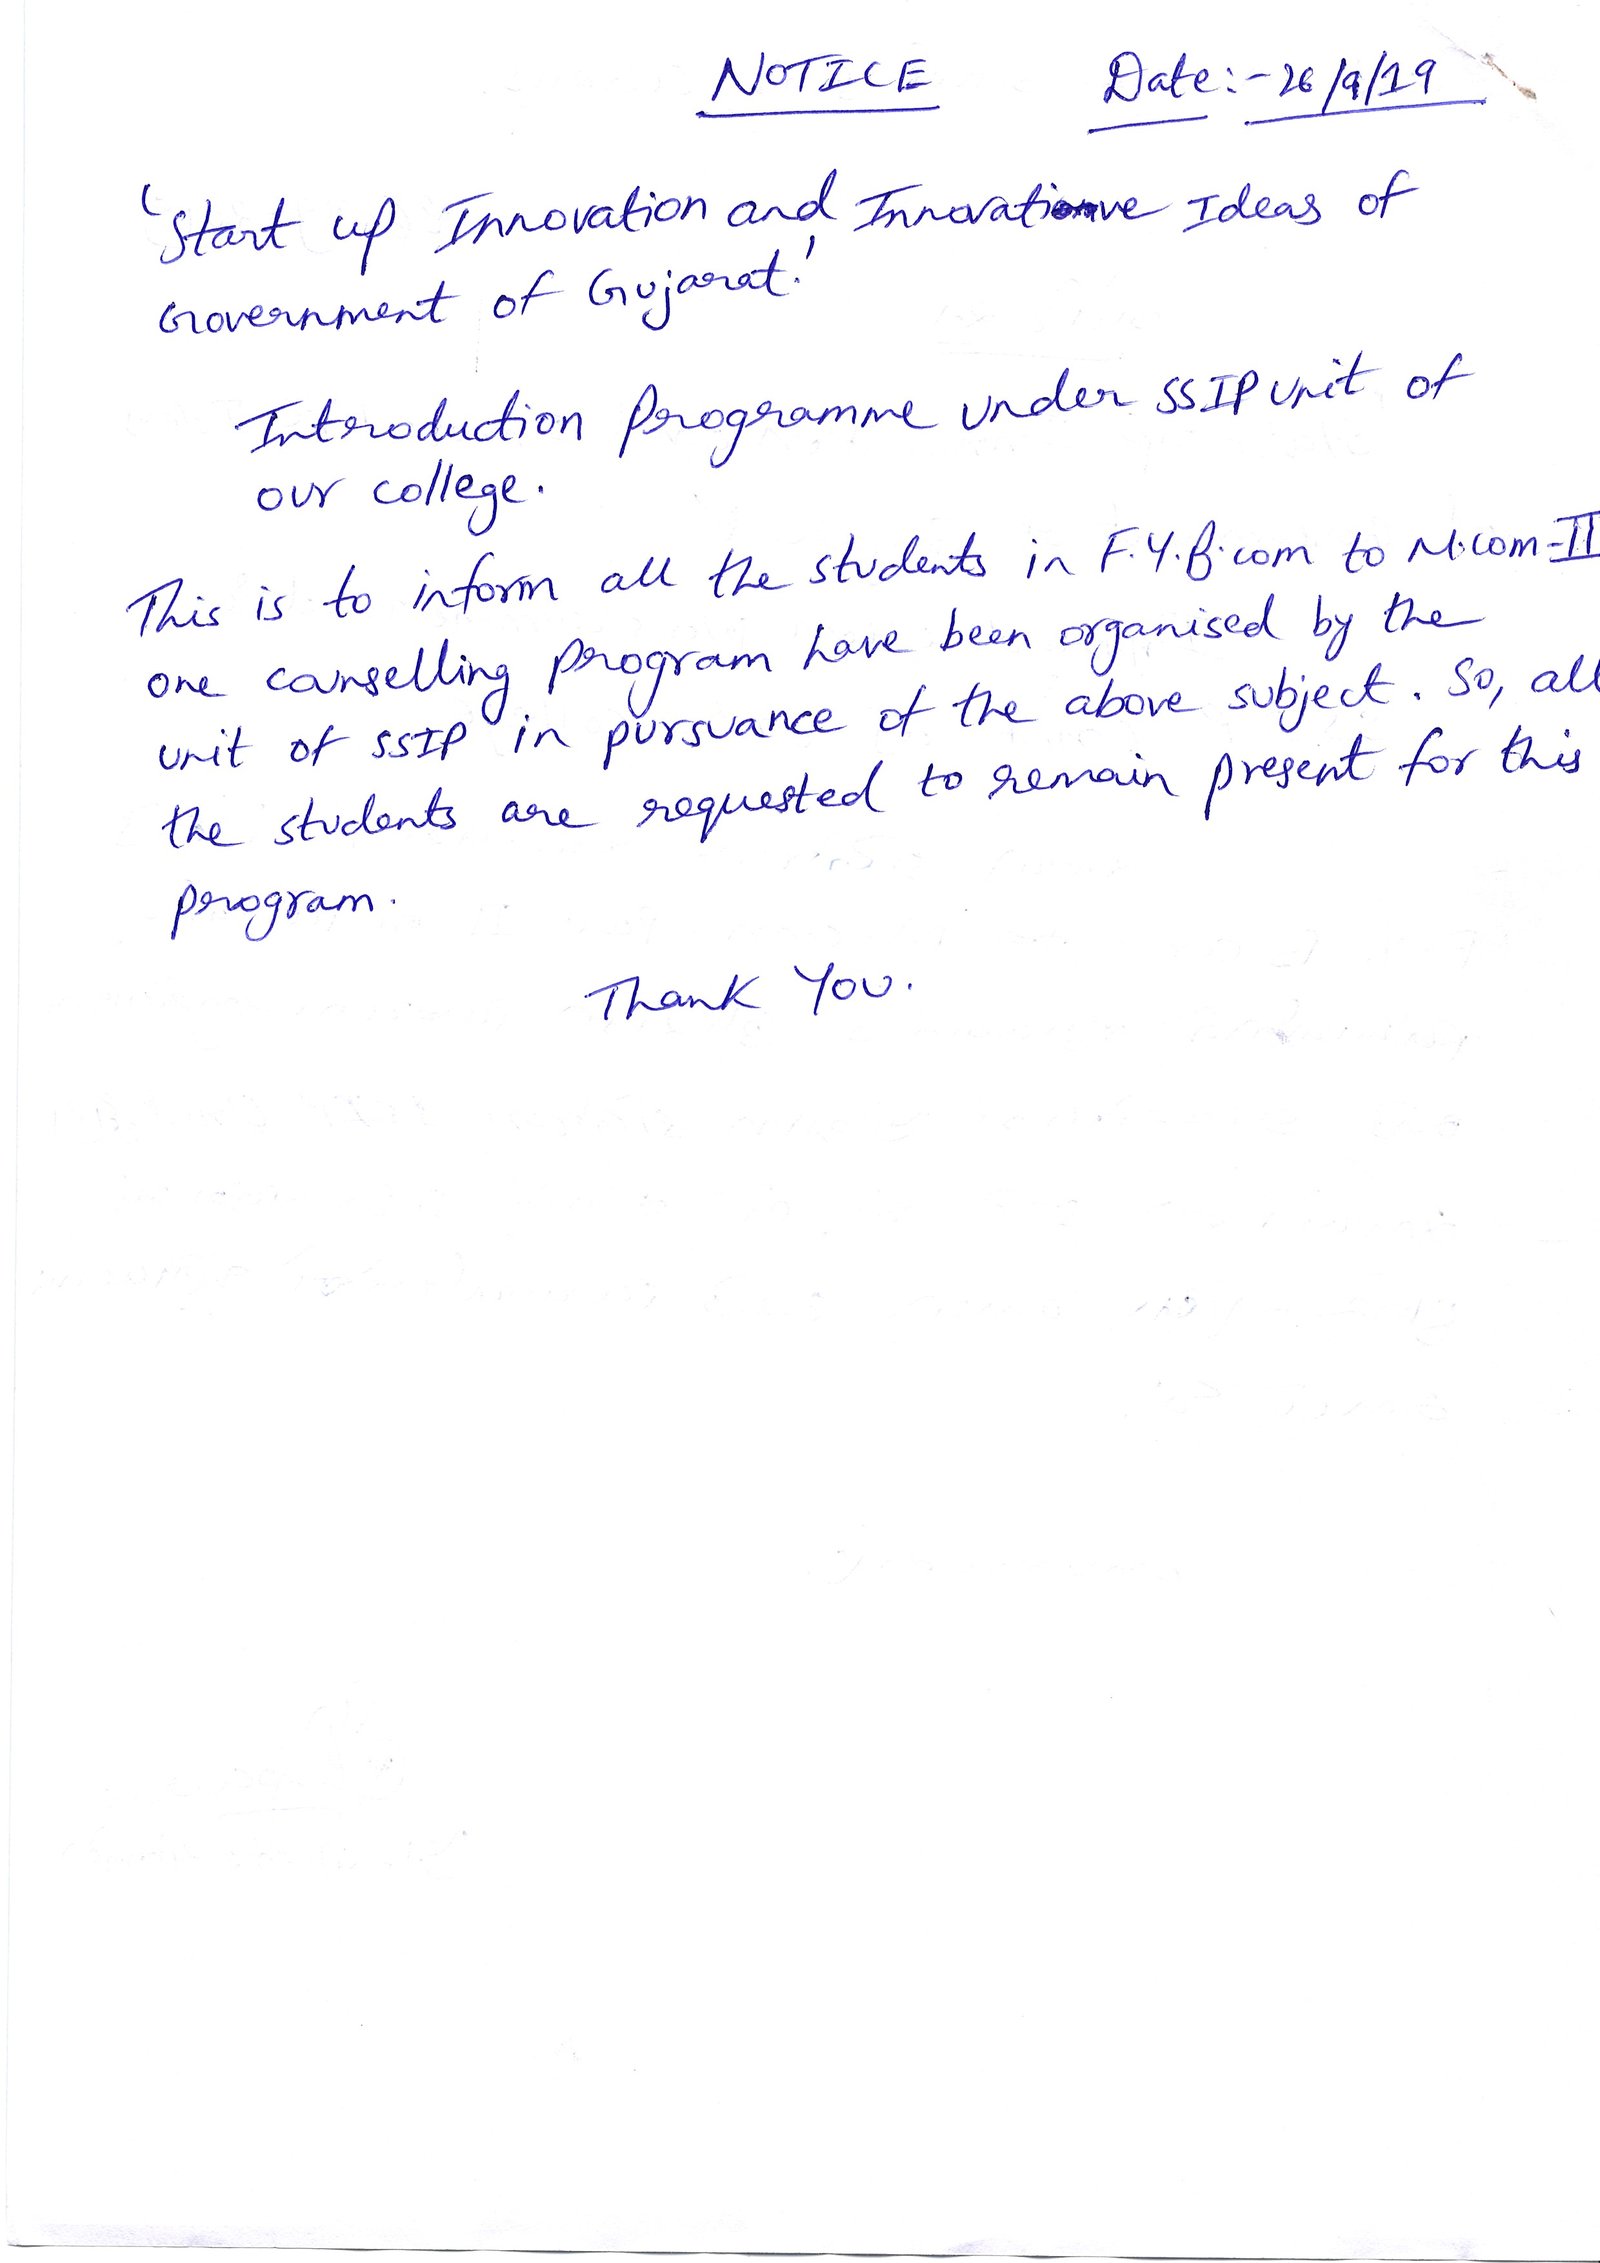 NOTICE Date:-26/9/19
'Start up Innovation and Innovative Ideas of
Government of Gujarat.'
Introduction Programme under SSIP unit of
our college.
This is to inform all the students in F.Y.B.com to M.com-II
one counselling program have been organised by the
unit of SSIP in pursuance of the above subject. So, all
the students are requested to remain present for this
program.
Thank You.